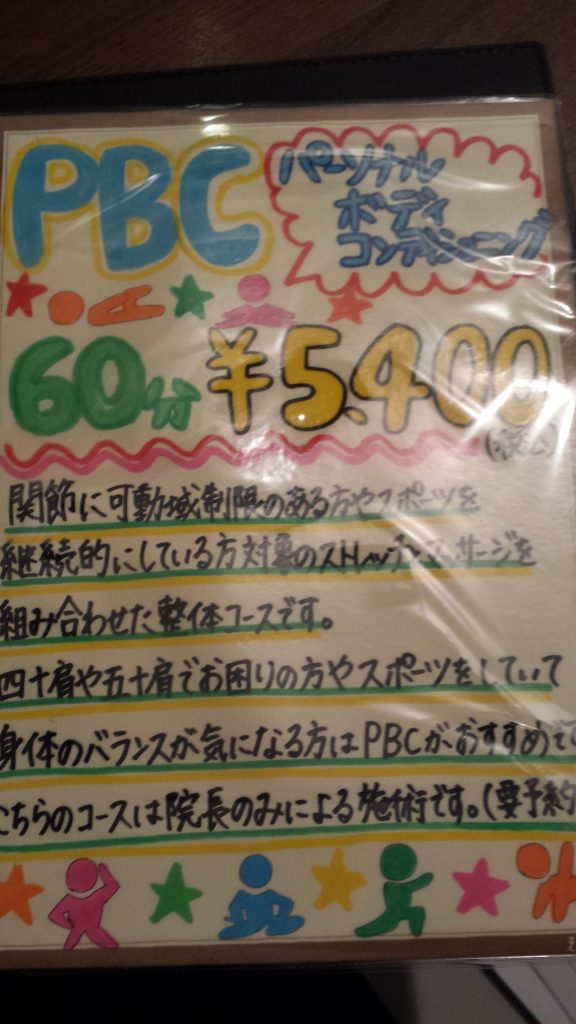 PBC
パーソナル
ボディ
コンディショニング
60分 ¥5,400
(税込)
関節に可動域制限のある方やスポーツを
継続的にしている方対象のストレッチとマッサージを
組み合わせた整体コースです。
四十肩や五十肩でお困りの方やスポーツをしていて
身体のバランスが気になる方はPBCがおすすめで
こちらのコースは院長のみによる施術です。(要予約